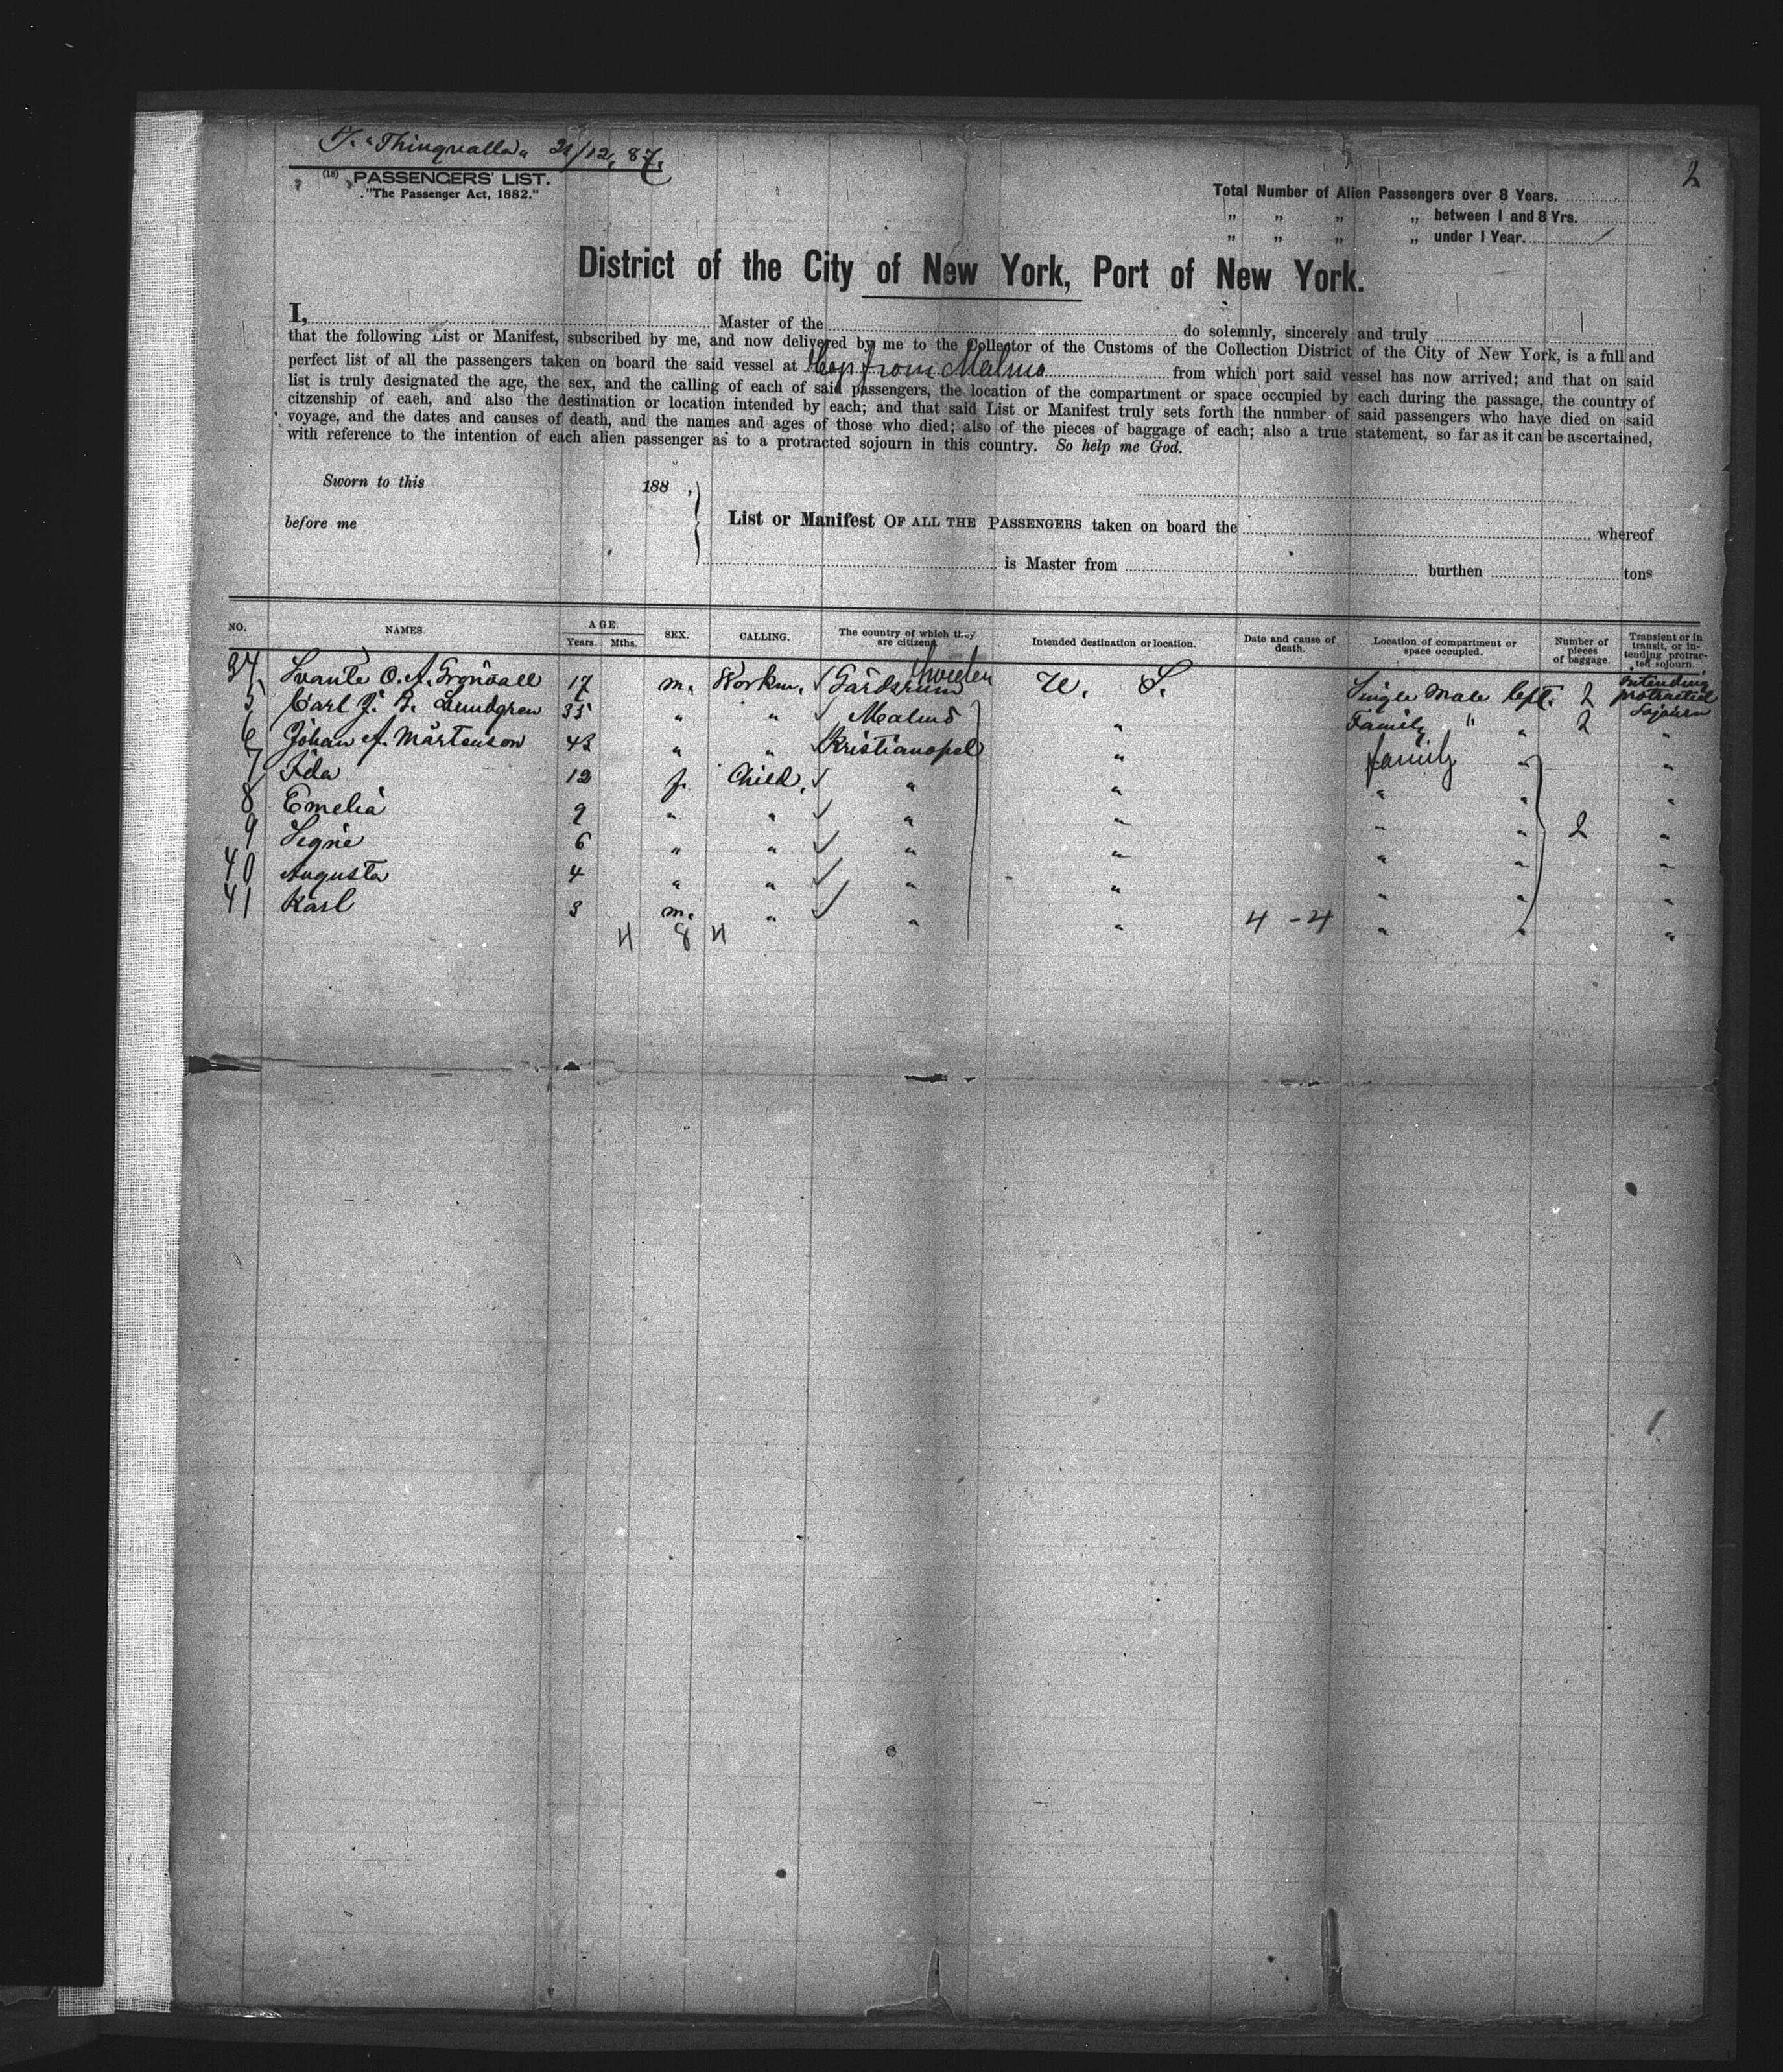 S. "Thingvalla" 21/12, 87.
2
(18) PASSENGERS' LIST.
"The Passenger Act, 1882."
Total Number of Alien Passengers over 8 Years.
„ „ „ „ between 1 and 8 Yrs.
„ „ „ „ under 1 Year.
District of the City of New York, Port of New York.
I, Master of the do solemnly, sincerely and truly
that the following List or Manifest, subscribed by me, and now delivered by me to the Collector of the Customs of the Collection District of the City of New York, is a full and
perfect list of all the passengers taken on board the said vessel at from Malmo from which port said vessel has now arrived; and that on said
list is truly designated the age, the sex, and the calling of each of said passengers, the location of the compartment or space occupied by each during the passage, the country of
citzenship of eaeh, and also the destination or location intended by each; and that said List or Manifest truly sets forth the number of said passengers who have died on said
voyage, and the dates and causes of death, and the names and ages of those who died; also of the pieces of baggage of each; also a true statement, so far as it can be ascertained,
with reference to the intention of each alien passenger as to a protracted sojourn in this country. So help me God.
Sworn to this 188 ,
before me
List or Manifest OF ALL THE PASSENGERS taken on board the whereof
is Master from burthen tons
NO. NAMES. AGE. Years. Mths. SEX. CALLING. The country of which they are citizens. Intended destination or location. Date and cause of death. Location of compartment or space occupied. Number of pieces of baggage. Transient or in transit, or intending protracted sojourn.
Sweden
34 Svante O. A. Grönvall 17 m. Workm. Gårdsrum U. S. Single Male 2 Intending protracted Sojourn
5 Carl J. Lundgren 35 " " Malmö " Family " " 2 "
6 Johan A. Mårtenson 43 " " Kristianopel " family " "
7 Ida 12 f. Child, " " " " "
8 Emelia 9 " " " " " " 2 "
9 Signe 6 " " " " " " "
40 Augusta 4 " " " " " " "
41 Karl 3 m. " " " " " "
4 8 4 4 - 4